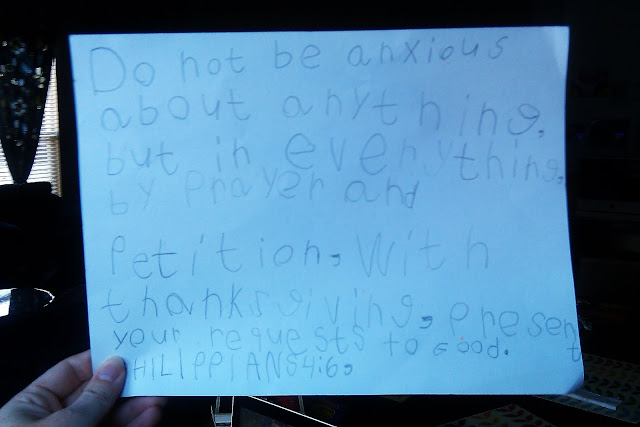 Do not be anxious
about anything,
but in everything,
by Prayer and
Petition, With
thanksgiving, present
your requests to Good.
PHILIPPIANS4:6,